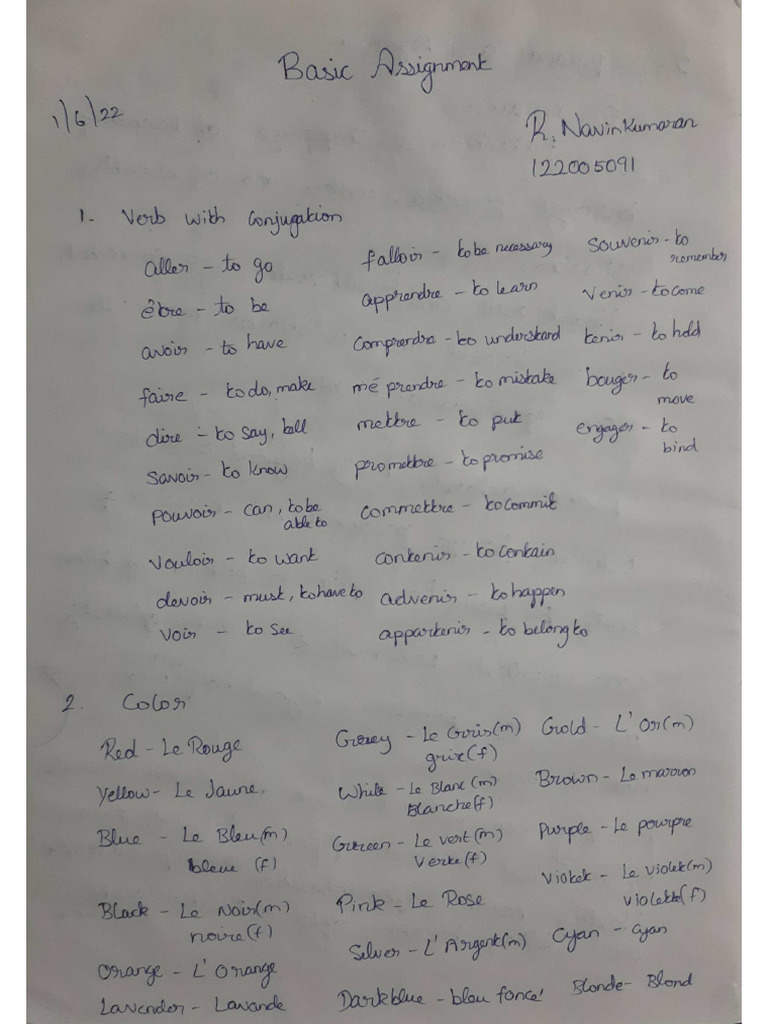 Basic Assignment
1/6/22
R. Navinkumaran
122005091
1. Verb with Conjugation
aller - to go
être - to be
avoir - to have
faire - to do, make
dire - to say, tell
savoir - to know
pouvoir - can, to be
able to
vouloir - to want
devoir - must, to have to
voir - to see
falloir - to be necessary
apprendre - to learn
comprendre - to understand
mé prendre - to mistake
mettre - to put
promettre - to promise
commettre - to commit
contenir - to contain
advenir - to happen
appartenir - to belong to
souvenir - to
remember
venir - to come
tenir - to hold
bouger - to
move
engager - to
bind
2. Color
Red - Le Rouge
Yellow - Le Jaune
Blue - Le Bleu(m)
bleue (f)
Black - Le Noir(m)
noire(f)
Orange - L'Orange
Lavender - Lavande
Grey - Le Gris(m)
grise(f)
White - Le Blanc (m)
Blanche(f)
Green - Le vert (m)
Verte(f)
Pink - Le Rose
Silver - L'Argent(m)
Darkblue - bleu foncé
Gold - L'Or(m)
Brown - Le marron
Purple - Le pourpre
Violet - Le violet(m)
violette(f)
Cyan - Cyan
Blonde - Blond